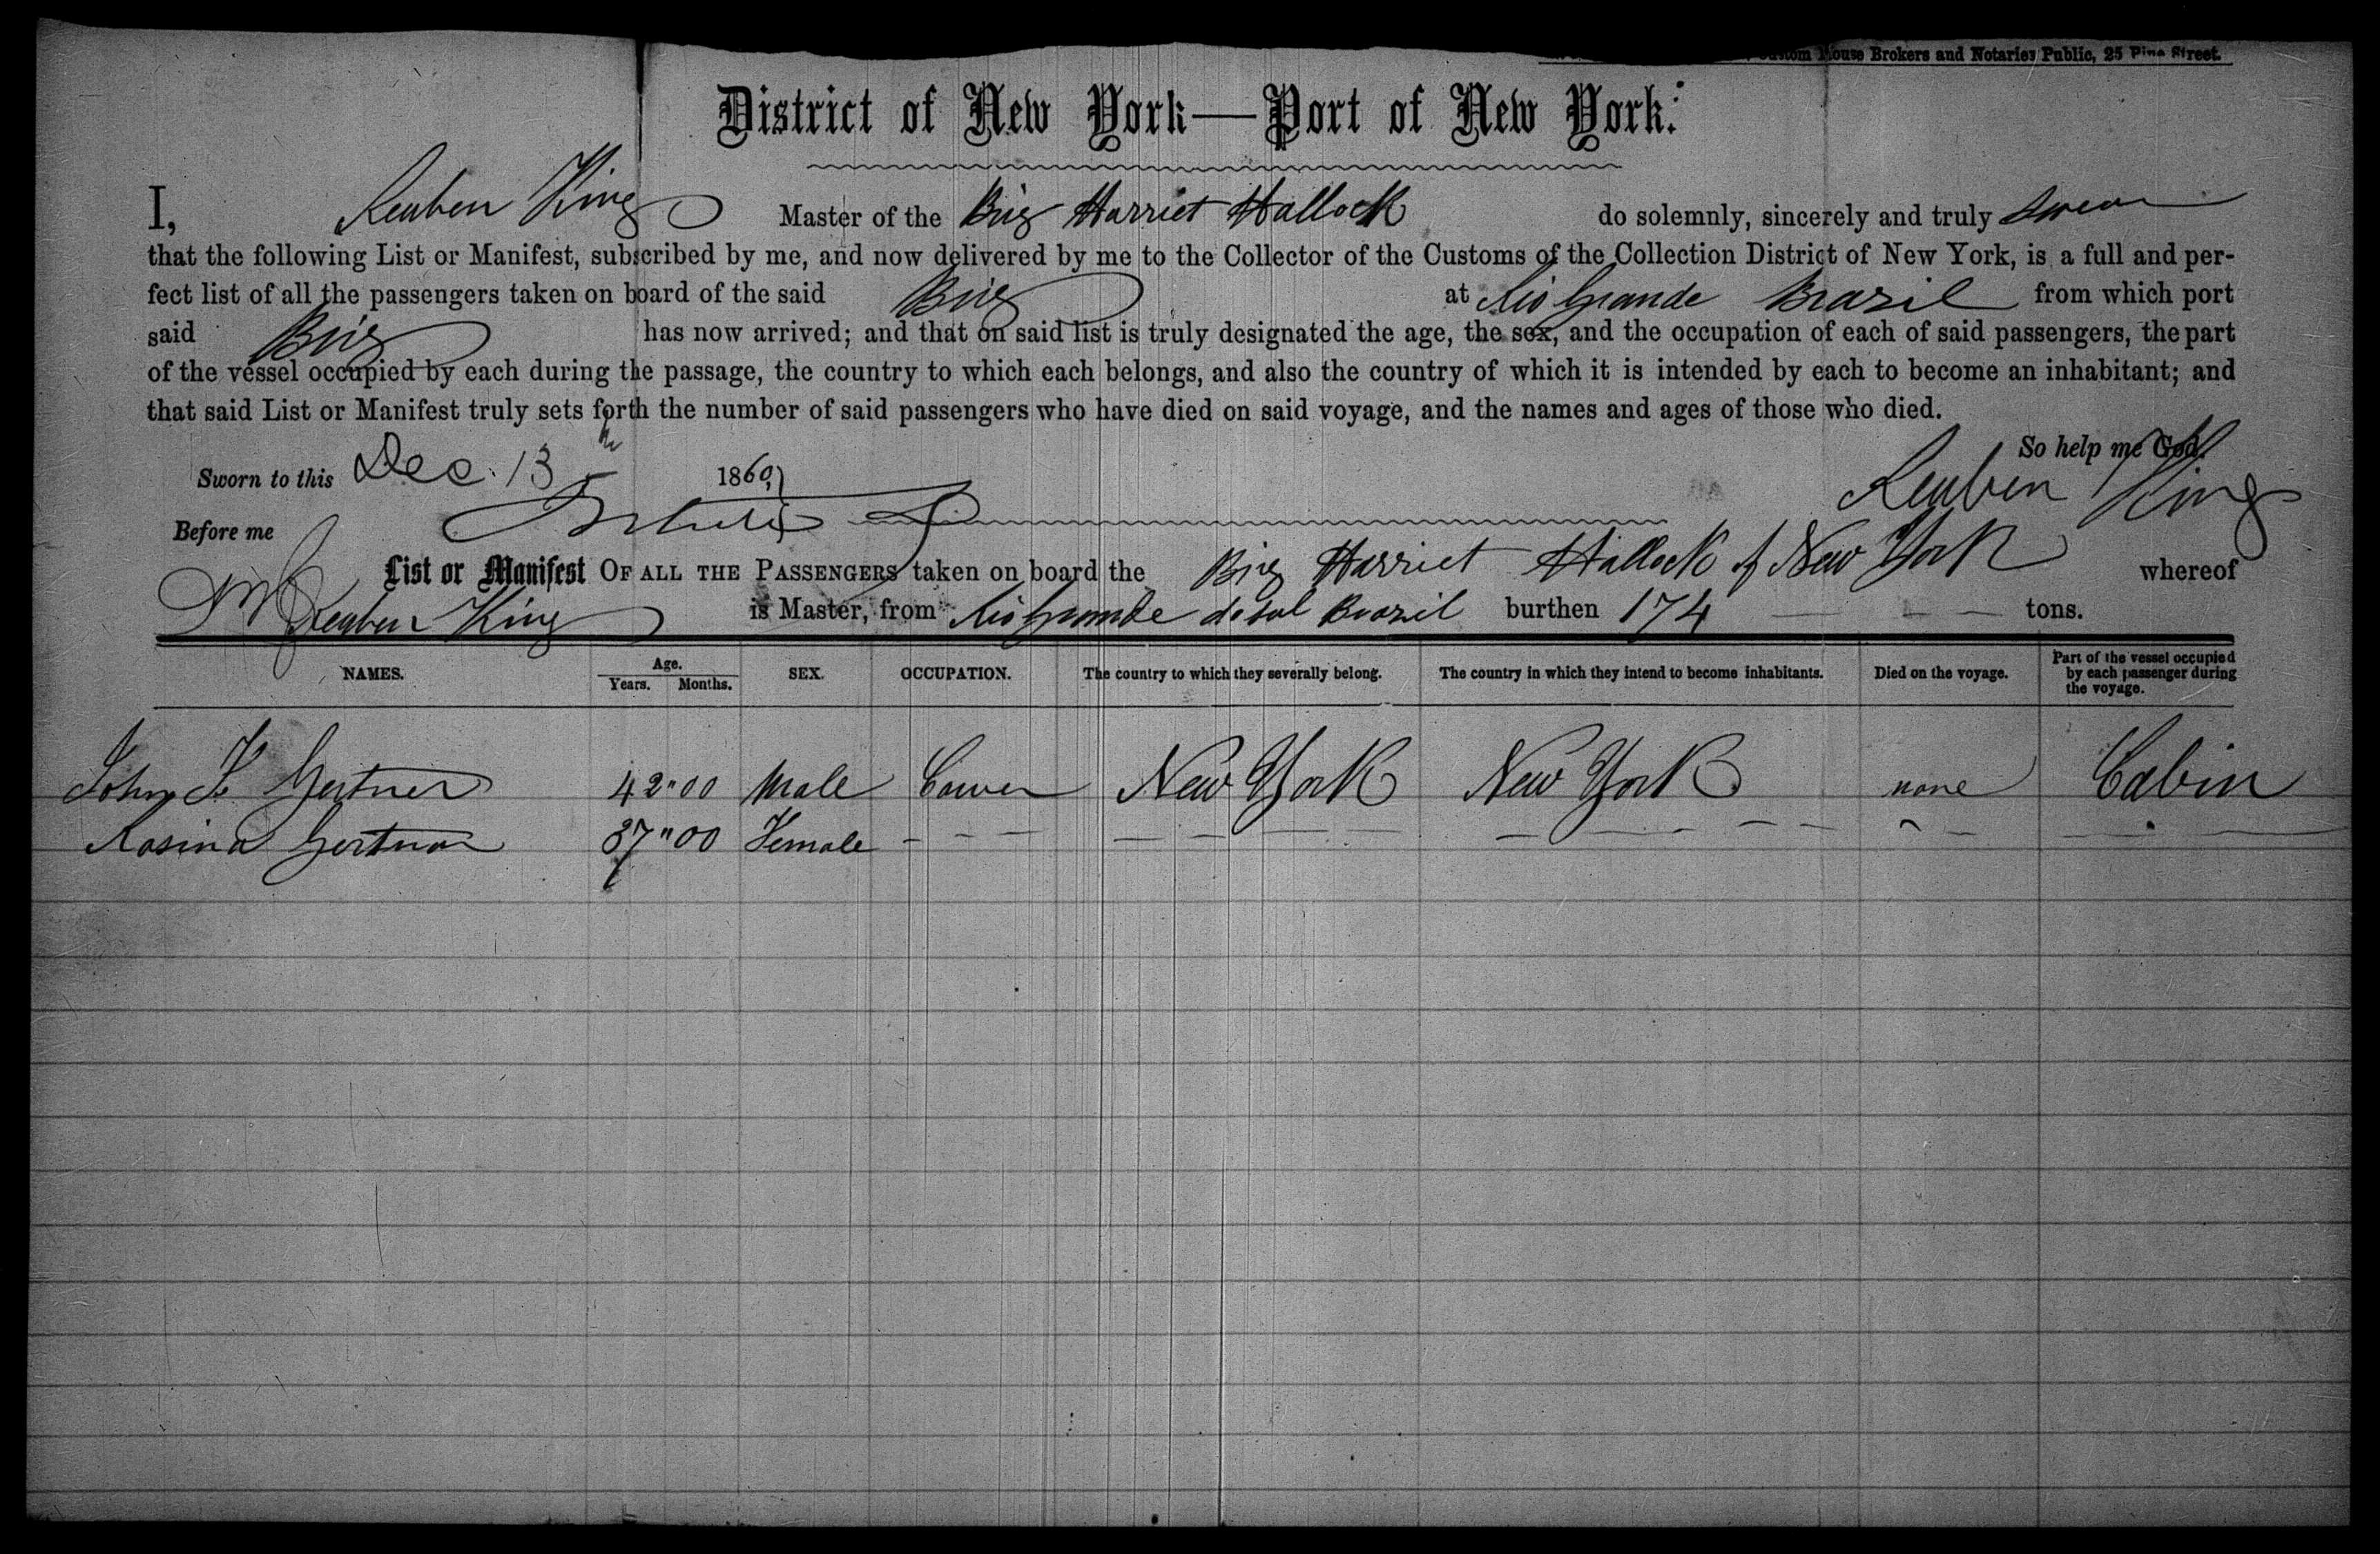 House Brokers and Notaries Public, 25 Pine Street.
District of New York—Port of New York:
I, Reuben King Master of the Brig Harriet Hallock do solemnly, sincerely and truly swear
that the following List or Manifest, subscribed by me, and now delivered by me to the Collector of the Customs of the Collection District of New York, is a full and per-
fect list of all the passengers taken on board of the said Brig at Rio Grande Brazil from which port
said Brig has now arrived; and that on said list is truly designated the age, the sex, and the occupation of each of said passengers, the part
of the vessel occupied by each during the passage, the country to which each belongs, and also the country of which it is intended by each to become an inhabitant; and
that said List or Manifest truly sets forth the number of said passengers who have died on said voyage, and the names and ages of those who died.
So help me God.
Sworn to this Dec. 13th 1860 Reuben King
Before me
List or Manifest OF ALL THE PASSENGERS taken on board the Brig Harriet Hallock of New York whereof
Reuben King is Master, from Rio Grande do sul Brazil burthen 174 tons.
NAMES. Age. Years. Months. SEX. OCCUPATION. The country to which they severally belong. The country in which they intend to become inhabitants. Died on the voyage. Part of the vessel occupied by each passenger during the voyage.
John F Gertner 42"00 Male New York New York none Cabin
Rosina Gertner 37"00 Female